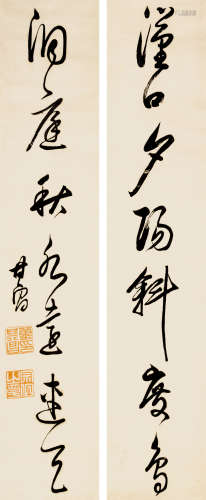 漢口夕陽斜度鳥
洞庭秋水遠連天